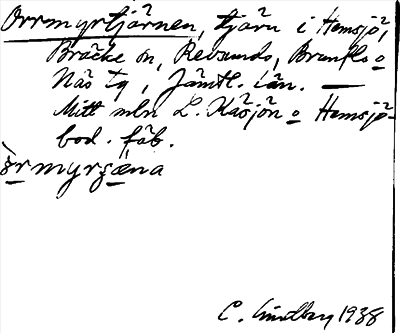 Orrmyrtjärnen, tjärn i Hemsjö,
Bräcke sn, Revsunds, Brunflo o
Näs tg, Jämtl. län. —
Mitt mln L. Kåsjön o Hemsjö-
bod. fäb.
òrmyrʒæna
C. Lindberg 1938